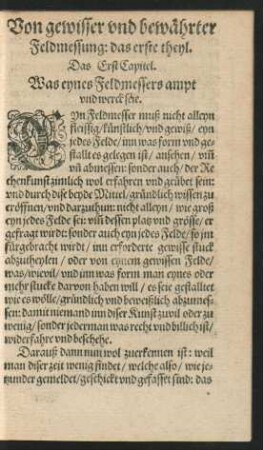 Von gewisser vnd bewährter
Feldmessung: das erste theyl.
Das Erst Capitel.
Was eynes Feldmessers ampt
vnd werck sei.
EYn Feldmesser muß nicht alleyn
fleissig/künstlich/vnd gewiß/ eyn
jedes Felde/ inn was form vnd ge-
stallt es gelegen ist/ ansehen/ vnd
abmessen: sonder auch/ der Re
chenkunst zimlich wol erfahren vnd geübet sein:
vnd durch dise beyde Mittel/gründlich wissen zu
eröffnen/ vnd darzuthun: nicht alleyn/ wie groß
eyn jedes Felde sei: vnd dessen platz vnd grösse/ er
gefragt wirdt: sonder auch eyn jedes Felde/ so jm
fürgebracht wirdt/ inn erforderte gewisse stuck
abzutheylen/ oder von eynem gewissen Felde/
was/wievil/ vnd inn was form man eynes oder
mehr stucke darvon haben will/ es seie gestaltet
wie es wölle/gründlich vnd beweißlich abzumes-
sen: damit niemand inn diser Kunst zuvil oder zu
wenig/sonder jederman was recht vnd billich ist/
widerfahre vnd beschehe.
Darauß dann nun wol zuerkennen ist: weil
man diser zeit wenig findet/ welche also/ wie je-
tzunder gemeldet/geschickt vnd gefasset sind: das